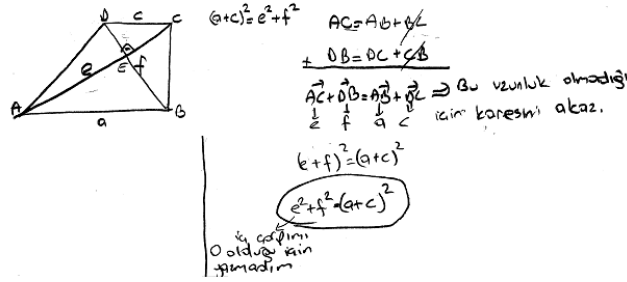 D c C
(a+c)²=e²+f²
AC=AB+BC
+ DB=DC+CB
e E f
A a B
AC+DB=AB+DC ⇒ Bu uzunluk olmadığı
e f a c için karesini alcaz.
(e+f)²=(a+c)²
e²+f²=(a+c)²
iç çarpımı
0 olduğu için
yazmadım